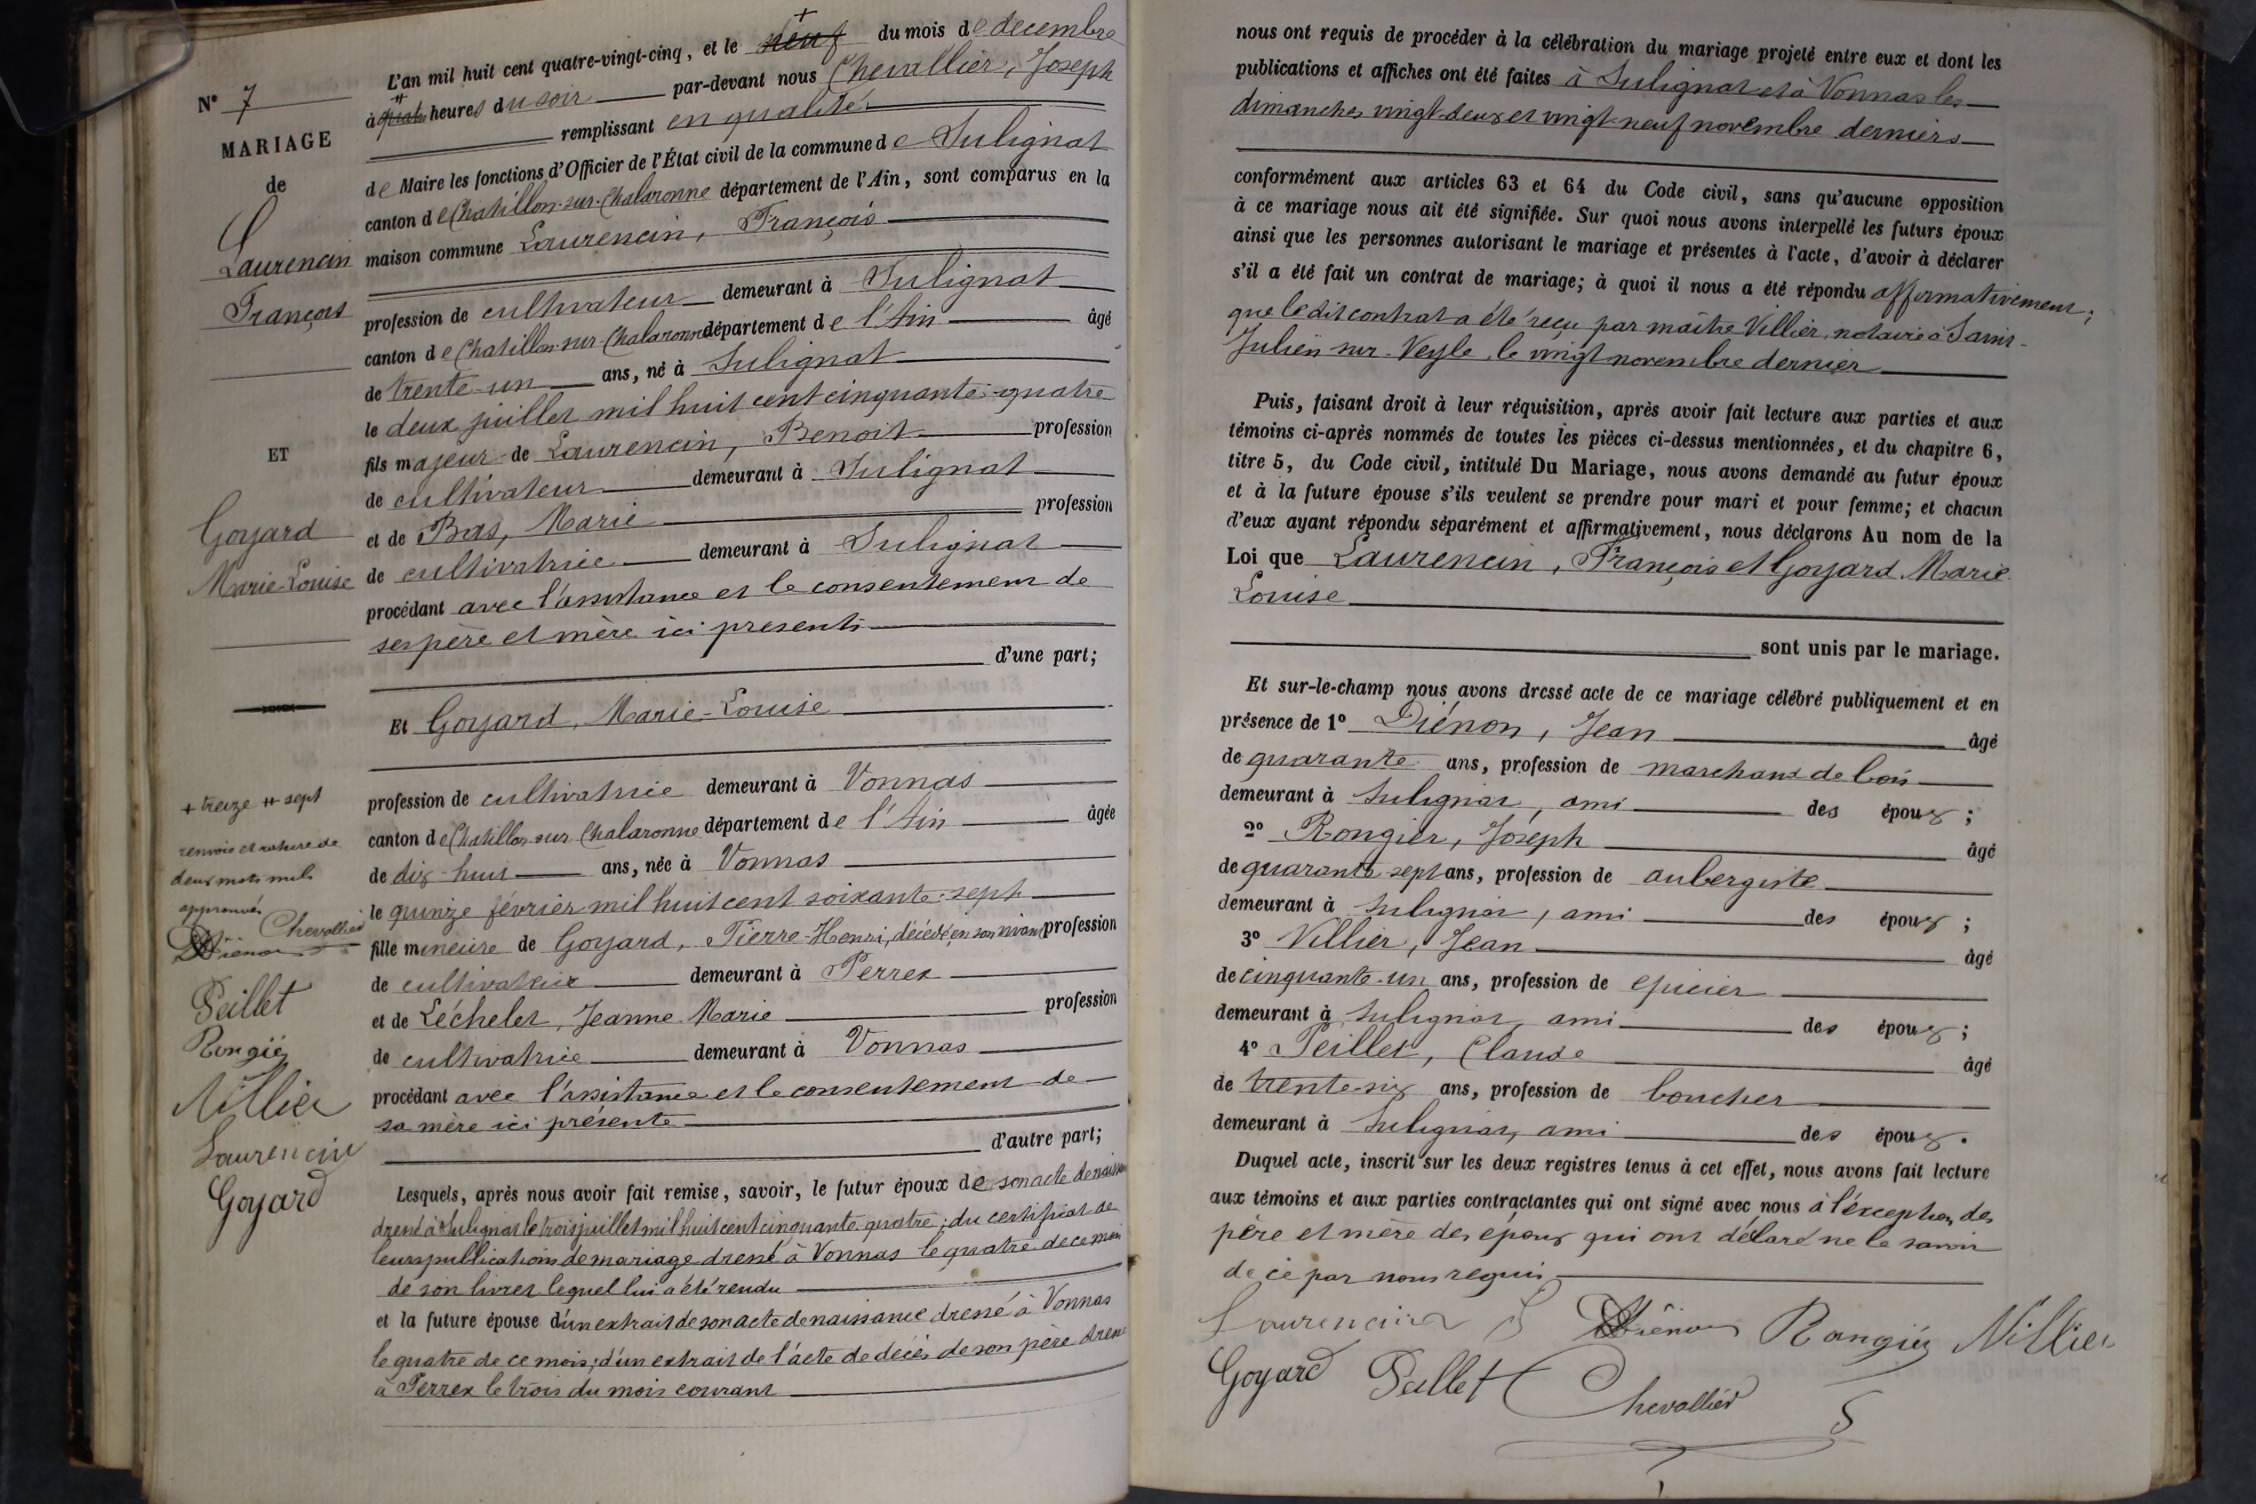 N° 7
MARIAGE
de
Laurencin
François
ET
Goyard
Marie-Louise
+ treize ++ sept
renvois et rature de
deux mots nuls
approuvés
Chevallier
Diénon
Peillet
Rongier
Villier
Laurencin
Goyard
L'an mil huit cent quatre-vingt-cinq, et le + neuf du mois de decembre
à ++ heures du soir par-devant nous Chevallier, Joseph
remplissant en qualité
de Maire les fonctions d'Officier de l'État civil de la commune de Sulignat
canton de Chatillon-sur-Chalaronne département de l'Ain, sont comparus en la
maison commune Laurencin, François
profession de cultivateur demeurant à Sulignat
canton de Chatillon-sur-Chalaronne département de l'Ain âgé
de trente-un ans, né à Sulignat
le deux juillet mil huit cent cinquante-quatre
fils majeur de Laurencin, Benoit profession
de cultivateur demeurant à Sulignat
et de Bas, Marie profession
de cultivatrice demeurant à Sulignat
procédant avec l'assistance et le consentement de
ses père et mère ici présents
d'une part;
Et Goyard, Marie-Louise
profession de cultivatrice demeurant à Vonnas
canton de Chatillon-sur-Chalaronne département de l'Ain âgée
de dix-huit ans, née à Vonnas
le quinze février mil huit cent soixante-sept
fille mineure de Goyard, Pierre-Henri, décédé, en son vivant profession
de cultivateur demeurant à Perrex
et de Léchelet, Jeanne-Marie profession
de cultivatrice demeurant à Vonnas
procédant avec l'assistance et le consentement de
sa mère ici présente
d'autre part;
Lesquels, après nous avoir fait remise, savoir, le futur époux de son acte de naissance
dressé à Sulignat le trois juillet mil huit cent cinquante-quatre; du certificat de
leurs publications de mariage dressé à Vonnas le quatre de ce mois
de son livret lequel lui a été rendu
et la future épouse d'un extrait de son acte de naissance dressé à Vonnas
le quatre de ce mois; d'un extrait de l'acte de décès de son père dressé
à Perrex le trois du mois courant
nous ont requis de procéder à la célébration du mariage projeté entre eux et dont les
publications et affiches ont été faites à Sulignat et à Vonnas les
dimanches vingt-deux et vingt-neuf novembre derniers
conformément aux articles 63 et 64 du Code civil, sans qu'aucune opposition
à ce mariage nous ait été signifiée. Sur quoi nous avons interpellé les futurs époux
ainsi que les personnes autorisant le mariage et présentes à l'acte, d'avoir à déclarer
s'il a été fait un contrat de mariage; à quoi il nous a été répondu affirmativement;
que le dit contrat a été reçu par maître Villier, notaire à Saint-
Julien sur-Veyle, le vingt novembre dernier
Puis, faisant droit à leur réquisition, après avoir fait lecture aux parties et aux
témoins ci-après nommés de toutes les pièces ci-dessus mentionnées, et du chapitre 6,
titre 5, du Code civil, intitulé Du Mariage, nous avons demandé au futur époux
et à la future épouse s'ils veulent se prendre pour mari et pour femme; et chacun
d'eux ayant répondu séparément et affirmativement, nous déclarons Au nom de la
Loi que Laurencin, François et Goyard Marie
Louise
sont unis par le mariage.
Et sur-le-champ nous avons dressé acte de ce mariage célébré publiquement et en
présence de 1° Diénon, Jean âgé
de quarante ans, profession de marchand de bois
demeurant à Sulignat, ami des époux;
2° Rongier, Joseph âgé
de quarante sept ans, profession de aubergiste
demeurant à Sulignat, ami des époux;
3° Villier, Jean âgé
de cinquante-un ans, profession de épicier
demeurant à Sulignat, ami des époux;
4° Peillet, Claude âgé
de trente-six ans, profession de boucher
demeurant à Sulignat, ami des époux.
Duquel acte, inscrit sur les deux registres tenus à cet effet, nous avons fait lecture
aux témoins et aux parties contractantes qui ont signé avec nous à l'exception des
père et mère des époux qui ont déclaré ne le savoir
de ce par nous requis
Laurencin Diénon Rongier Villier
Goyard Peillet Chevallier